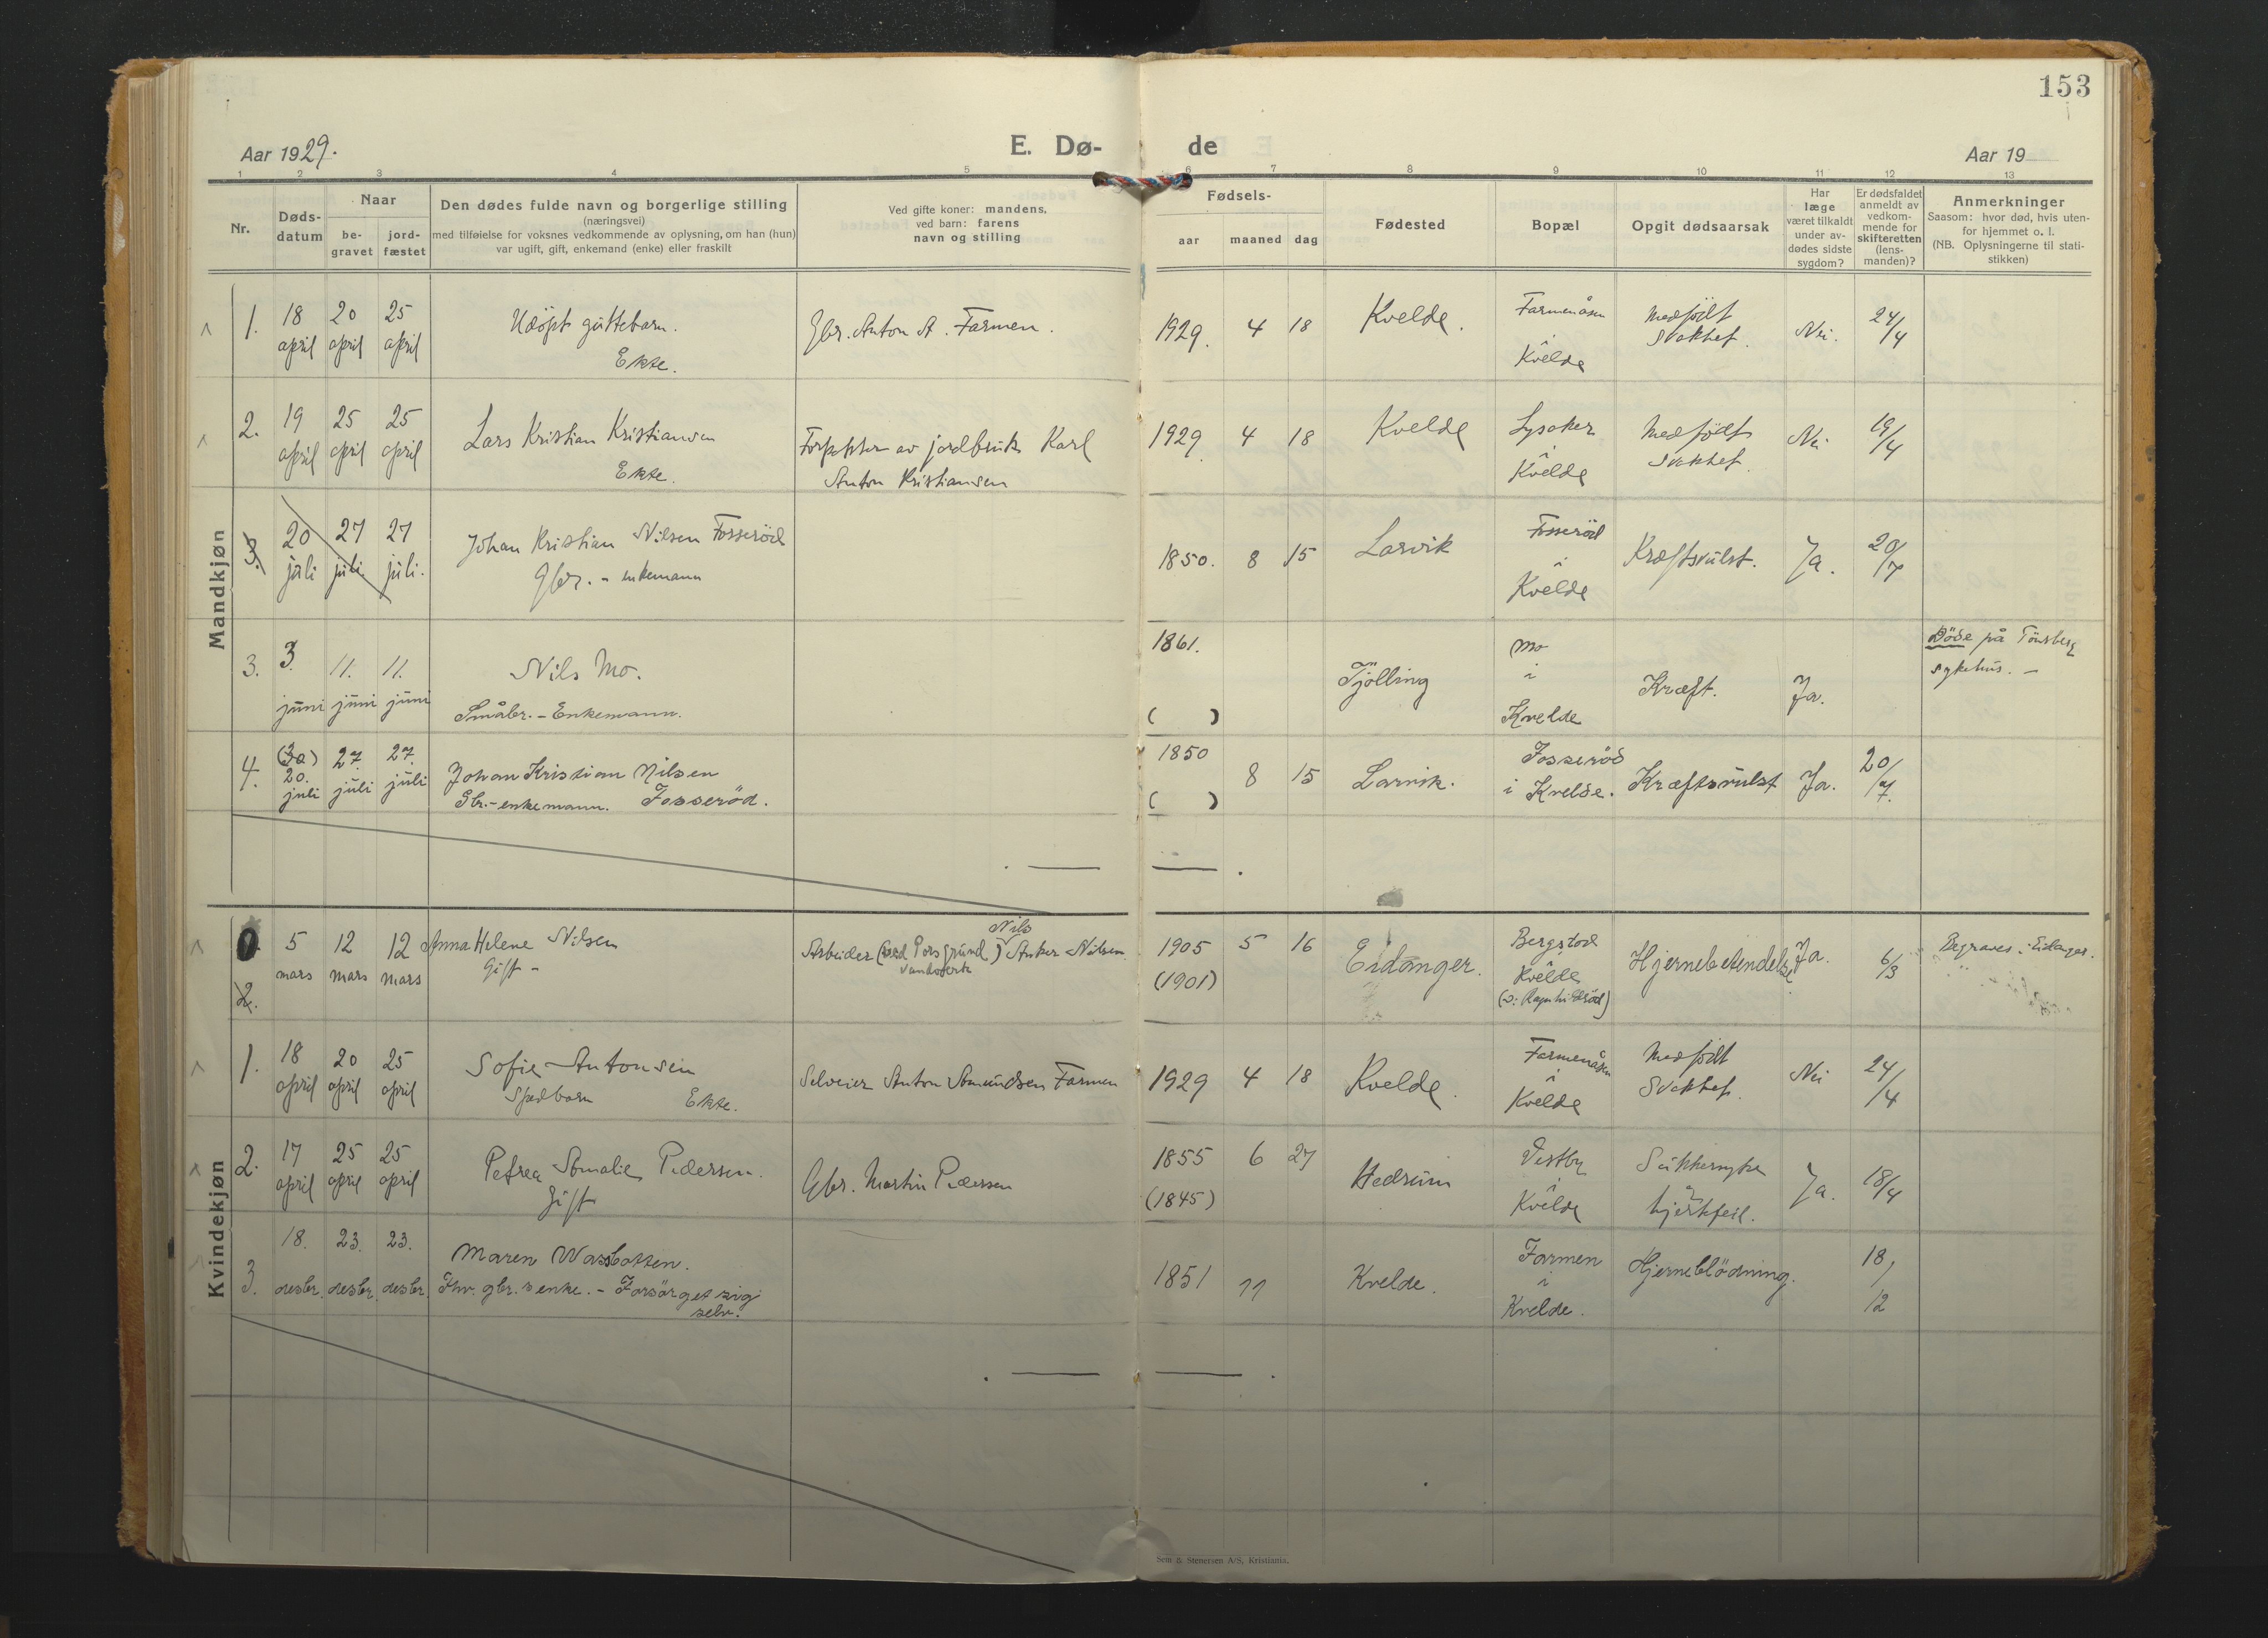 153
Aar 1929.
E. Dø-
de
Aar 19
1 2 3 4 5 6 7 8 9 10 11 12 13
Nr.
Døds-
datum
Naar
be-
gravet
jord-
fæstet
Den dødes fulde navn og borgerlige stilling
(næringsvei)
med tilføielse for voksnes vedkommende av oplysning, om han (hun)
var ugift, gift, enkemand (enke) eller fraskilt
Ved gifte koner: mandens,
ved barn: farens
navn og stilling
Fødsels-
aar maaned dag
Fødested
Bopæl
Opgit dødsaarsak
Har
læge
været tilkaldt
under av-
dødes sidste
sygdom?
Er dødsfaldet
anmeldt av
vedkom-
mende for
skifteretten
(lens-
manden)?
Anmerkninger
Saasom: hvor død, hvis uten-
for hjemmet o. l.
(NB. Oplysningerne til stati-
stikken)
Mandkjøn
1. 18 april 20 april 25 april
Udöpt guttebarn.
Ekte.
Gbr. Anton A. Farmen.
1929. 4 18 Kvelde.
Farmenåsen
i
Kvelde
Medfödt
svakhet.
Nei. 24/4
2. 19 april 25 april 25 april
Lars Kristian Kristiansen
Ekte.
Forpakter av jordbruk Karl
Anton Kristiansen
1929. 4 18 Kvelde
Lysaker
i
Kvelde
Medfödt
svakhet.
Nei 19/4
3. 20 juli 27 juli 27 juli.
Johan Kristian Nilsen Fosseröd
Gbr. - enkemann
1850. 8 15 Larvik
Fosseröd
i
Kvelde
Kræftsvulst. Ja. 20/7
3. 3. juni 11. juni 11. juni
Nils Mo.
Småbr. - Enkemann.
1861.
( )
Tjölling
Mo
i
Kvelde
Kræft. Ja.
Döde på Tönsberg
sykehus. -
4. 20. juli 27. juli 27. juli
Johan Kristian Nilsen
Gbr. - enkemann. Fosseröd.
1850
( )
8 15 Larvik.
Fosseröd
i Kvelde.
Kræftsvulst Ja. 20/7.
Kvindekjøn
2. 5 mars 12 mars 12 mars
Anna Helene Nilsen
Gift -
Nils
Arbeider (ved Porsgrund) Anker Nilsen.
Vannverk
1905
(1901)
5 16 Eidanger.
Bergstod
i
Kvelde
Hjernebetendelse Ja. 6/3
Begraves i Eidanger.
1. 18 april 20 april 25 april
Sofie Antonsen
Spedbarn Ekte.
Selveier Anton Amundsen Farmen
1929 4 18 Kvelde.
Farmenåsen
i
Kvelde
Medfödt
svakhet.
Nei 24/4
2. 17 april 25 april 25 april
Petrea Amalie Pedersen.
Gift
Gbr. Martin Pedersen
1855
(1845)
6 27 Hedrum
Vestby
i
Kvelde
Sukkersyke
og
hjertefeil.
Ja. 18/4
3. 18. desbr. 23. desbr. 23. desbr.
Maren Wassbotten.
Fhv. gbr.s enke. - Forsörget sig
selv.
1851 11 Kvelde.
Farmen
i
Kvelde.
Hjerneblödning.
18/12
Sem & Stenersen A/S, Kristiania.